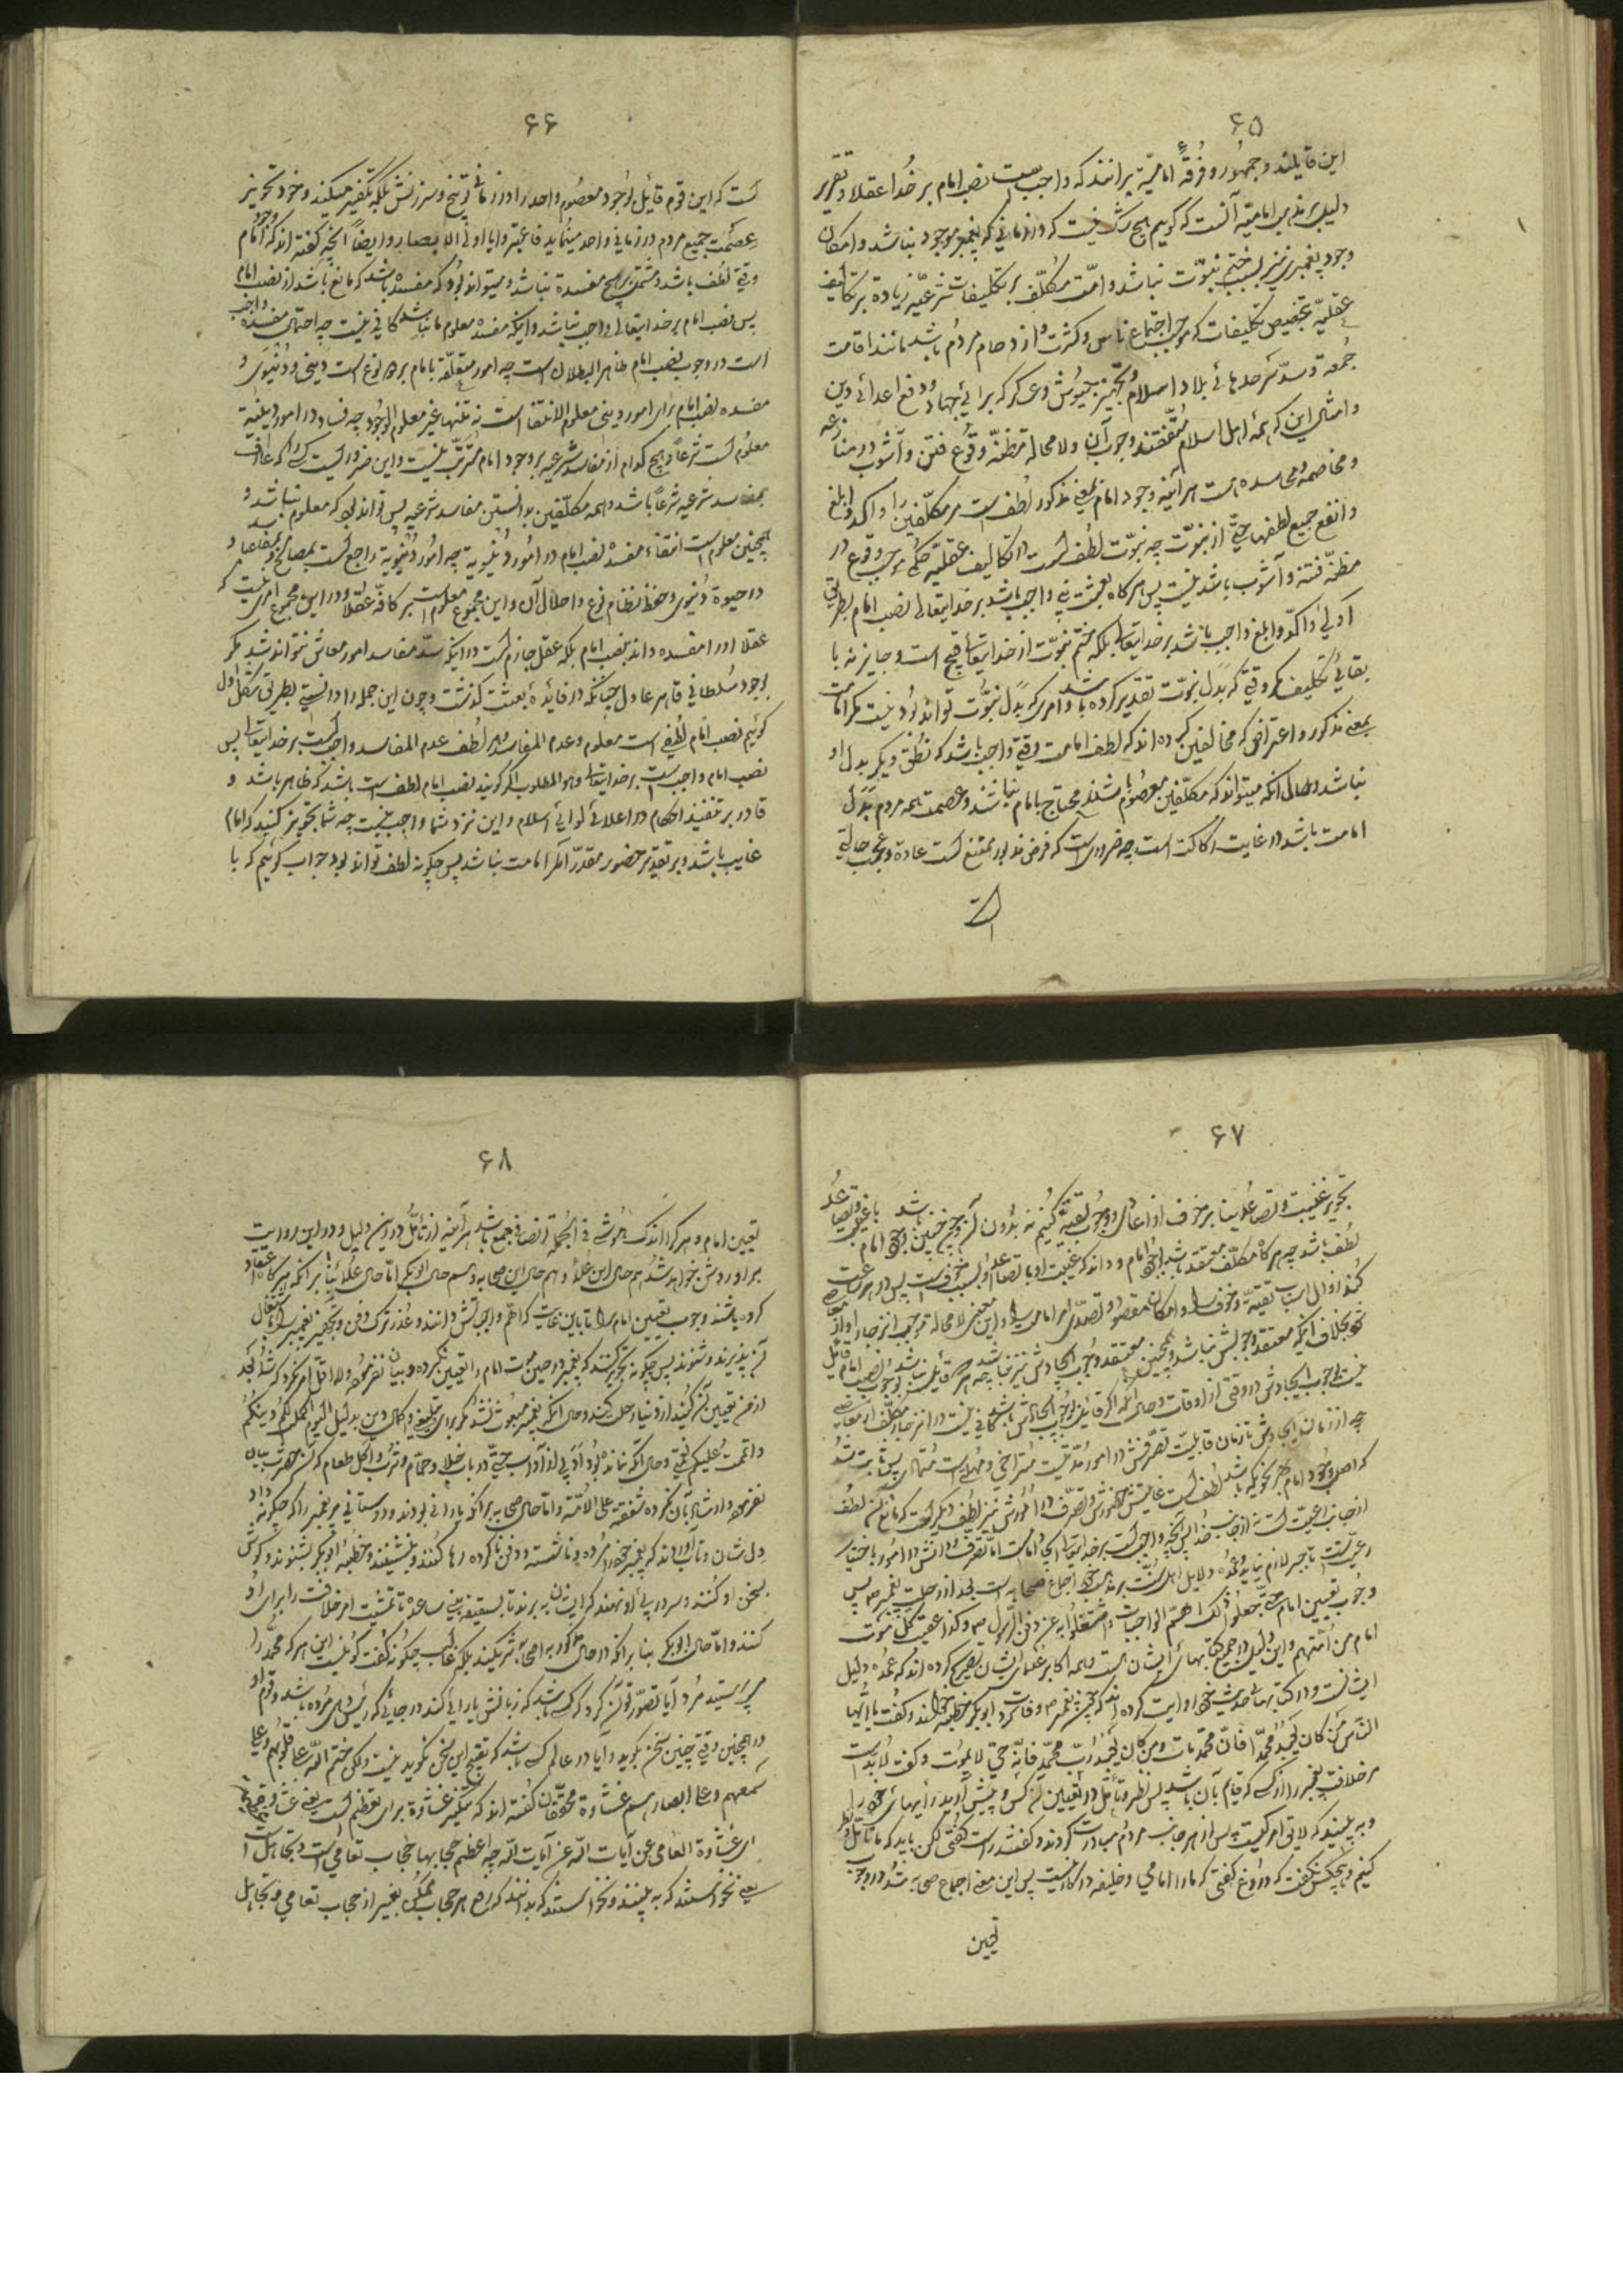 ۶۵
این قایلند و جمهور و فرقهٔ امامیّه برانند که واجبست نصب امام بر خدا عقلا و تقریر
دلیل بر مذهب امامیّه آنست که کوییم هیچ شک نیست که در زمانی که پیغمبر موجود نباشد و امکان
وجود پیغمبری نیز بسبب ختم نبوّت نباشد و امّت مکلّف بر تکلیفات شرعیّه زیاده بر تکالیف
عقلیّه بتخصیص تکلیفات که موجب اجتماع ناس و کثرت و ازدحام مردم باشد مانند اقامت
جمعه و سدّ سرحدهای بلاد اسلام و تجهیز جیوش و عسکر که برای جهاد و دفع اعدای دین
و امثال این که همهٔ اهل اسلام متّفقند بر وجوب آن ولا محاله مظنّهٔ وقوع فتن و آشوب و منازعه
و مخاصمه و محاسده است هر آینه وجود امام بمعنی مذکور لطف است مر مکلّفین را و اکد و ابلغ
و انفع جمیع لطفها حتّی از نبوّت چه نبوّت لطفست در تکالیف عقلیّه
مظنّهٔ فتنه و آشوب باشد نیست پس هر کاه بعثت نبی واجب باشد بر خدایتعالی نصب امام بطریق
اولی و اکد و ابلغ واجب باشد بر خدایتعالی بلکه ختم نبوّت از خدایتعالی قبیح است و جایز نه با
بقای تکلیف مکر وقتی که بدل نبوّت تقدیر کرده باشد و امری که بدل نبوّت تواند بود نیست مکر امامت
بمعنی مذکور و اعتراضی که مخالفین کرده‌اند که لطف امامت وقتی واجب باشد که لطفی دیکر بدل او
نباشد و حال آنکه میتواند که مکلّفین معصوم باشند و محتاج بامام نباشند و عصمت همه مردم بدل
امامت باشد در غایت رکاکت است چه ضروریست که فرض مذبور ممتنع است عادة و عجب حالتی
است
۶۶
است که این قوم قائل بوجود معصوم واحد را در زمانی توبیخ و سرزنش بلکه تکفیر میکنند و خود تجویز
عصمت جمیع مردم در زمانی واحد مینماید فاعتبروا یا اولی الابصار و ایضاً آنچه کفته‌اند که وجود امام
وقتی لطف باشد که مشتمل بر هیچ مفسده نباشد و میتواند بود که مفسده باشد که مانع باشد از نصب امام
پس نصب امام بر خدایتعالی واجب نباشد و اینکه مفسده معلوم ما نباشد کافی نیست چه احتمال مفسده واجب
است در وجوب نصب امام ظاهر البطلان است چه امور متعلّقه بامام بر دو نوع است دینی و دنیوی و
مفسده نصب امام برای امور دینی معلوم الانتفا است نه تنها غیر معلوم الوجود چه فساد در امور دینیه
معلوم است شرعاً و هیچ کدام از مفاسد شرعیه بر وجود امام مترتّب نیست و این ضروریست کسی را که عارف
بمفاسد شرعیه شرعاً باشد و همه مکلّفین بدانستن مفاسد شرعیه پس نتواند بود که معلوم نباشد و
همچنین معلوم است انتفاء مفسده نصب امام در امور دنیویه چه امور دنیویه راجع است بمصالح و مفاسد
در حیوة دنیوی و حفظ نظام نوع و اخلال آن و این مجموع معلوم است بر کافّهٔ عقلا و در این مجموع امری نیست که
عقلا او را مفسده داند بنصب امام بلکه عقل جازمست در اینکه سدّ مفاسد امور معاش نتواند شد مکر
بوجود سلطانی قاهر عادل چنانکه در فایدهٔ بعثت کذشت و چون این جمله را دانستی بطریق شکل اول
کوئیم نصب امام لطفی است معلوم و عدم المفاسد و هر لطف عدم المفاسد واجبست بر خدایتعالی پس
نصب امام واجبست بر خدایتعالی و هو المطلوب اکر کویند نصب امام لطف است باشد که ظاهر باشد و
قادر بر تنفیذ احکام و اعلای لوای اسلام و این نزد شما واجب نیست چه شما تجویز کنید که امام
غایب باشد و بر تقدیر حضور مقدّر امر امامت نباشد پس چکونه لطف تواند بود جواب کوئیم که با
۶۷
تجویز غیبت و تصاعد بنا بر خوف از اعادی و وجوب تقیّه کنیم نه بدون آن و چنین باشد با غیبت و تصاعد
لطف باشد چه هر کاه مکلّف معتقد باشد بوجود امام و داند که غیبت او یا تصاعد او بسبب خوفست پس در هر ساعت
کند زوال اسباب تقیّه و خوف را و امکان ظهور و تصدّی امر امامت را و این معنی لا محاله موجب انزجار او از معاصی
شود بخلاف آنکه معتقد وجودش نباشد و همچنین معتقد وجوب ایجادش نیز نباشد چه هر که قائل نباشد بوجوب نصب امام قائل
نیست بوجوب ایجادش در وقتی از اوقات و حال آنکه اکر قائل بوجوب ایجادش باشد کافی نیست در انزجار مکلّف از معاصی
چه از زمان ایجادش تا زمان قابلیّت تصرّفش در امور مدّتیست متراخی و مهلتیست متمادی پس ثابت شد
که اصل وجود امام بهر نحویکه باشد لطفست غایتش حضورش و تصرّفش در امور نیز لطفی دیکر است که مانع آن لطف
از جانب رعیّت است نه از جانب خدا پس آنچه واجبست بر خدایتعالی ایجاد امامت امّا تصرّف و دانش در امور باختیار
رعیّتست تا جبر لازم نیاید و عمدهٔ دلایل اهل سنّت بر مذهب خود اجماع صحابه است بعد از رحلت پیغمبر ص بس
وجوب تعیین امام حتّی جعلوا ذلک اهمّ الواجبات و اشتغلوا به عن دفن الرّسول ص و کذا عقیب کلّ موت
امام من ائمّتهم و این دلیل در جمیع کتابهای ایشان است و همه اکابر علمای ایشان تصریح کرده‌اند که عمده دلیل
ایشانست و در کتابهای حدیث خود روایت کرده‌اند که چون پیغمبر ص وفات کرد ابوبکر خطبه خواند و کفت یا ایّها
النّاس من کان یعبد محمّداً فانّ محمّداً مات و من کان یعبد ربّ محمّد فانّه حیّ لا یموت و کفت لا بدّ است
مر خلافت پیغمبر را از کسی که قیام بآن باشد پس نظر و تأمّل در تعیین آن کس و پیش آورید رأیهای خود را
و به بینید که لایق امر کیست پس از هر جانب مردم مبادرت کردند و کفتند راست کفتی لکن باید که ما تأمّل و نظر
کنیم و هیچکس نکفت که دروغ کفتی که ما را امامی و خلیفه در کار نیست پس این معنی اجماع صحابه شد در وجوب
تعیین
۶۸
تعیین امام و هر که را اندک هوشی فی الجمله انصافی جمع باشد هر آینه از تأمّل در این دلیل و در این روایت
بر او روشن خواهد شد هم حال این علما و هم حال این صحابه و هم حال ابوبکر امّا حال علما بنا بر آنکه هر کاه اعتقاد
کرده باشند وجوب تعیین امام را تا باین غایت که اهمّ واجباتش دانند و عذر ترک دفن و تجهیز پیغمبر را باشتغال
آن پذیرند و شنوند پس چکونه تجویز کنند که پیغمبر در حین موت امام را تعیین نکرده و بیان نفرموده
از من تعیین آن کنید از دنیا رحلت کند و حال آنکه پیغمبر مبعوث نشد مکر برای تبلیغ و اکمال دین بدلیل الیوم اکملت لکم دینکم
و اتممت علیکم نعمتی و حال آنکه نماند بود ادبی از آداب حتّی آداب خلا و حمّام و شرب و اکل طعام که آن حضرت بیان
نفرمود و ارشاد بآن نکرده شفقة علی الامّة و امّا حال صحابه بر آنکه یارانی بودند و دوستانی مر پیغمبر را که چکونه داد
دلشان و تاب آوردند که پیغمبر خود را مرده و ناشسته و دفن ناکرده رها کنند و بنشینند و خطبهٔ ابوبکر بشنوند و کوش
بسخن او کنند و سر در پی او نهند که ایشان به برند تا بسقیفه بنی ساعده تا تمشیت امر خلافت را برای او
کنند و امّا حال ابوبکر بنا بر آنکه در حال مذکور با صحابه شریکند بلکه غالب چکونه کفت کوئیست این هر که محمّد را
می‌پرستید مُرد آیا تصوّر توان کرد که کسی باشد که زبانش یارائی کند در جائی که رئیس وی مرده باشد و قوم او
در همچنین وقتی چنین سخن کوید و آیا در عالم کسی باشد که تقبیح این سخن نکوید نیست ولکن ختم الله علی قلوبهم و علی
سمعهم و علی ابصارهم غشاوة محقّقان کفته‌اند که تنکیر غشاوة برای تعظیم است یعنی غشاوة عظیمة
ای غشاوة التعامی عن آیات الله عن آیات الله چه اعظم حجابها حجاب تعامی است و تجاهل
یعنی نخواستند که به بینند و نخواستند که بدانند که رفع هر حجاب ممکن بغیر از حجاب تعامی و تجاهل